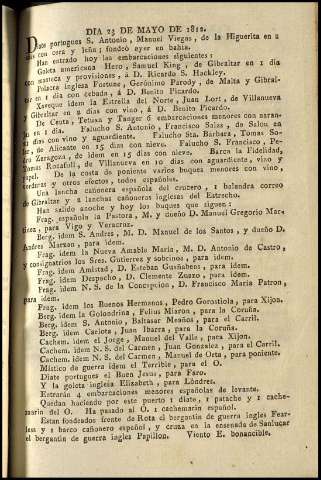 DIA 23 DE MAYO DE 1812.
Diate portugues S. Antonio, Manuel Viegas, de la Higuerita en 2
dias con cera y leña; fondeó ayer en bahia.
Han entrado hoy las embarcaciones siguientes:
Goleta americana Hero, Samuel King, de Gibraltar en 1 dia
con manteca y provisiones, á D. Ricardo S. Hackley.
Polacra inglesa Fortune, Gerónimo Parody, de Malta y Gibral-
tar en 1 dia con cebada, á D. Benito Picardo.
Xaveque idem la Estrella del Norte, Juan Lort, de Villanueva
y Gibraltar en 2 dias con vino, á D. Benito Picardo.
De Ceuta, Tetuan y Tanger 6 embarcaciones menores con naran-
jas en 1 dia. Falucho S. Antonio, Francisco Salas, de Salou en
dias con vino y aguardiente. Falucho Sta. Bárbara, Tomas So-
ler, de Alicante en 15 dias con nieve. Falucho S. Francisco, Pe-
dro Zaragoza, de idem en 15 dias con nieve. Barca la Fidelidad,
Tomas Rocafull, de Villanueva en 10 dias con aguardiente, vino y
papel. De la costa de poniente varios buques menores con vino,
verduras y otros efectos, todos españoles.
Una lancha cañonera española del crucero, 1 balendra correo
de Gibraltar y 2 lanchas cañoneras inglesas del Estrecho.
Han salido anoche y hoy los buques que siguen:
Frag. española la Pastora, M. y dueño D. Manuel Gregorio Mar-
tinez, para Vigo y Veracruz.
Berg. idem S. Andres, M. D. Manuel de los Santos, y dueño D.
Andres Marzan, para idem.
Frag. idem la Nueva Amable Maria, M. D. Antonio de Castro,
y consignatarios los Sres. Gutierrez y sobrinos, para idem.
Frag. idem Amistad, D. Esteban Gurbabeos, para idem.
Frag. idem Despacho, D. Clemente Zuazo, para idem.
Frag. idem N. S. de la Concepcion, D. Francisco Maria Patron,
para idem.
Frag. idem los Buenos Hermanos, Pedro Gorostiola, para Xijon.
Berg. idem la Golondrina, Felius Miaron, para la Coruña.
Berg. idem S. Antonio, Baltasar Meaños, para el Carril.
Berg. idem Carlota, Juan Ibarra, para la Coruña.
Cachem. idem el Jorge, Manuel del Valle, para Xijon.
Cachem. idem N. S. del Carmen, Juan Gonzalez, para el Carril.
Cachem. idem N. S. del Carmen, Manuel de Orta, para poniente.
Místico de guerra idem el Terrible, para el O.
Diate portugues el Buen Jesus, para Faro.
Y la goleta inglesa Elizabeth, para Lóndres.
Estrarán 4 embarcaciones menores españolas de levante.
Quedan haciendo por este puerto 1 diate, 1 patache y 1 cache-
marin del O. Ha pasado al O. 1 cachemarin español.
Estan fondeados frente de Rota el bergantin de guerra ingles Fear-
less y 1 barco cañonero español, y cruza en la ensenada de Sanlúcar
el bergantin de guerra ingles Papillon. Viento E. bonancible.